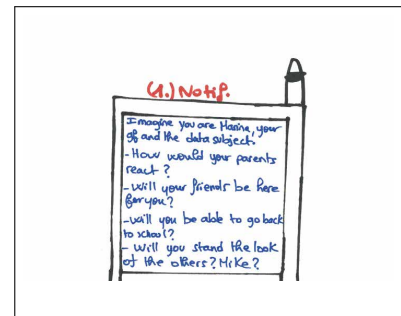 (1.) Notif.
Imagine you are Marine, your
gf and the data subject.
-How would your parents
react ?
-Will your friends be here
for you?
-Will you be able to go back
to school?
- Will you stand the look
of the others? Mike?